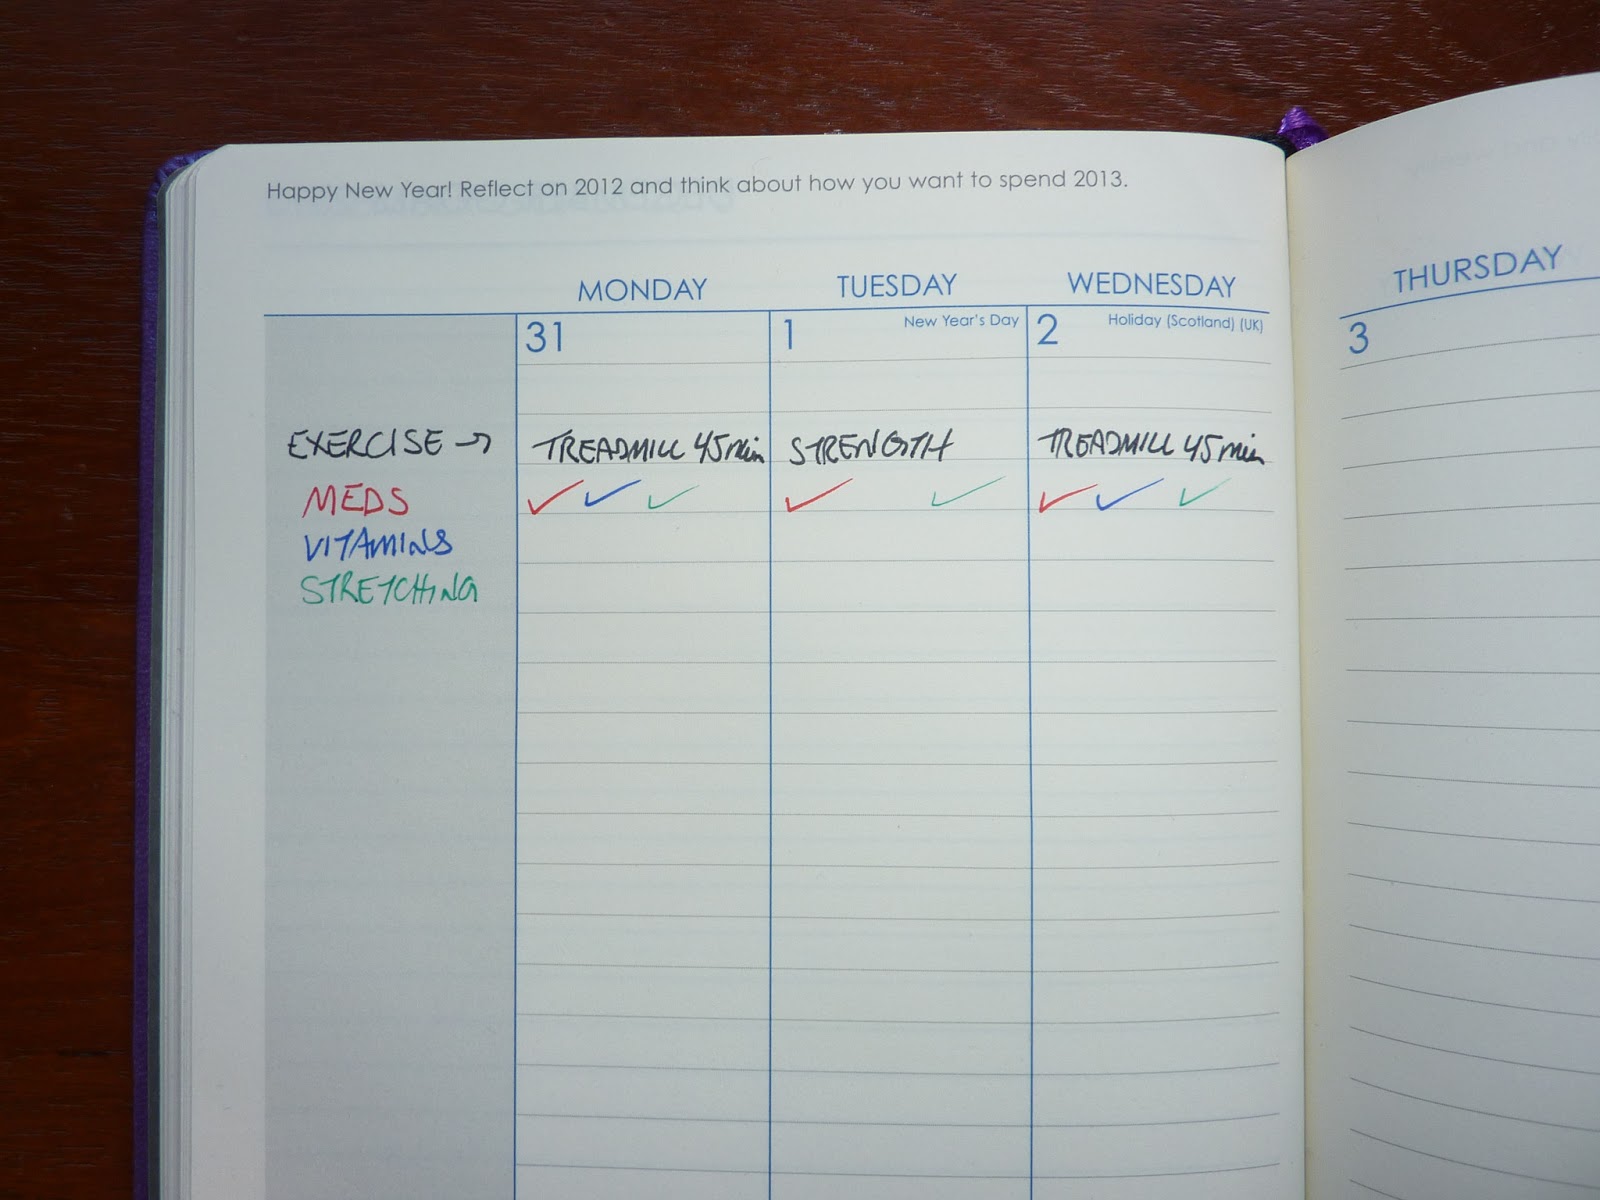 Happy New Year! Reflect on 2012 and think about how you want to spend 2013.
MONDAY TUESDAY WEDNESDAY THURSDAY
31 1 New Year's Day 2 Holiday (Scotland) (UK) 3
EXERCISE → TREADMILL 45min STRENGTH TREADMILL 45min
MEDS ✓ ✓ ✓ ✓ ✓ ✓ ✓ ✓
VITAMINS
STRETCHING